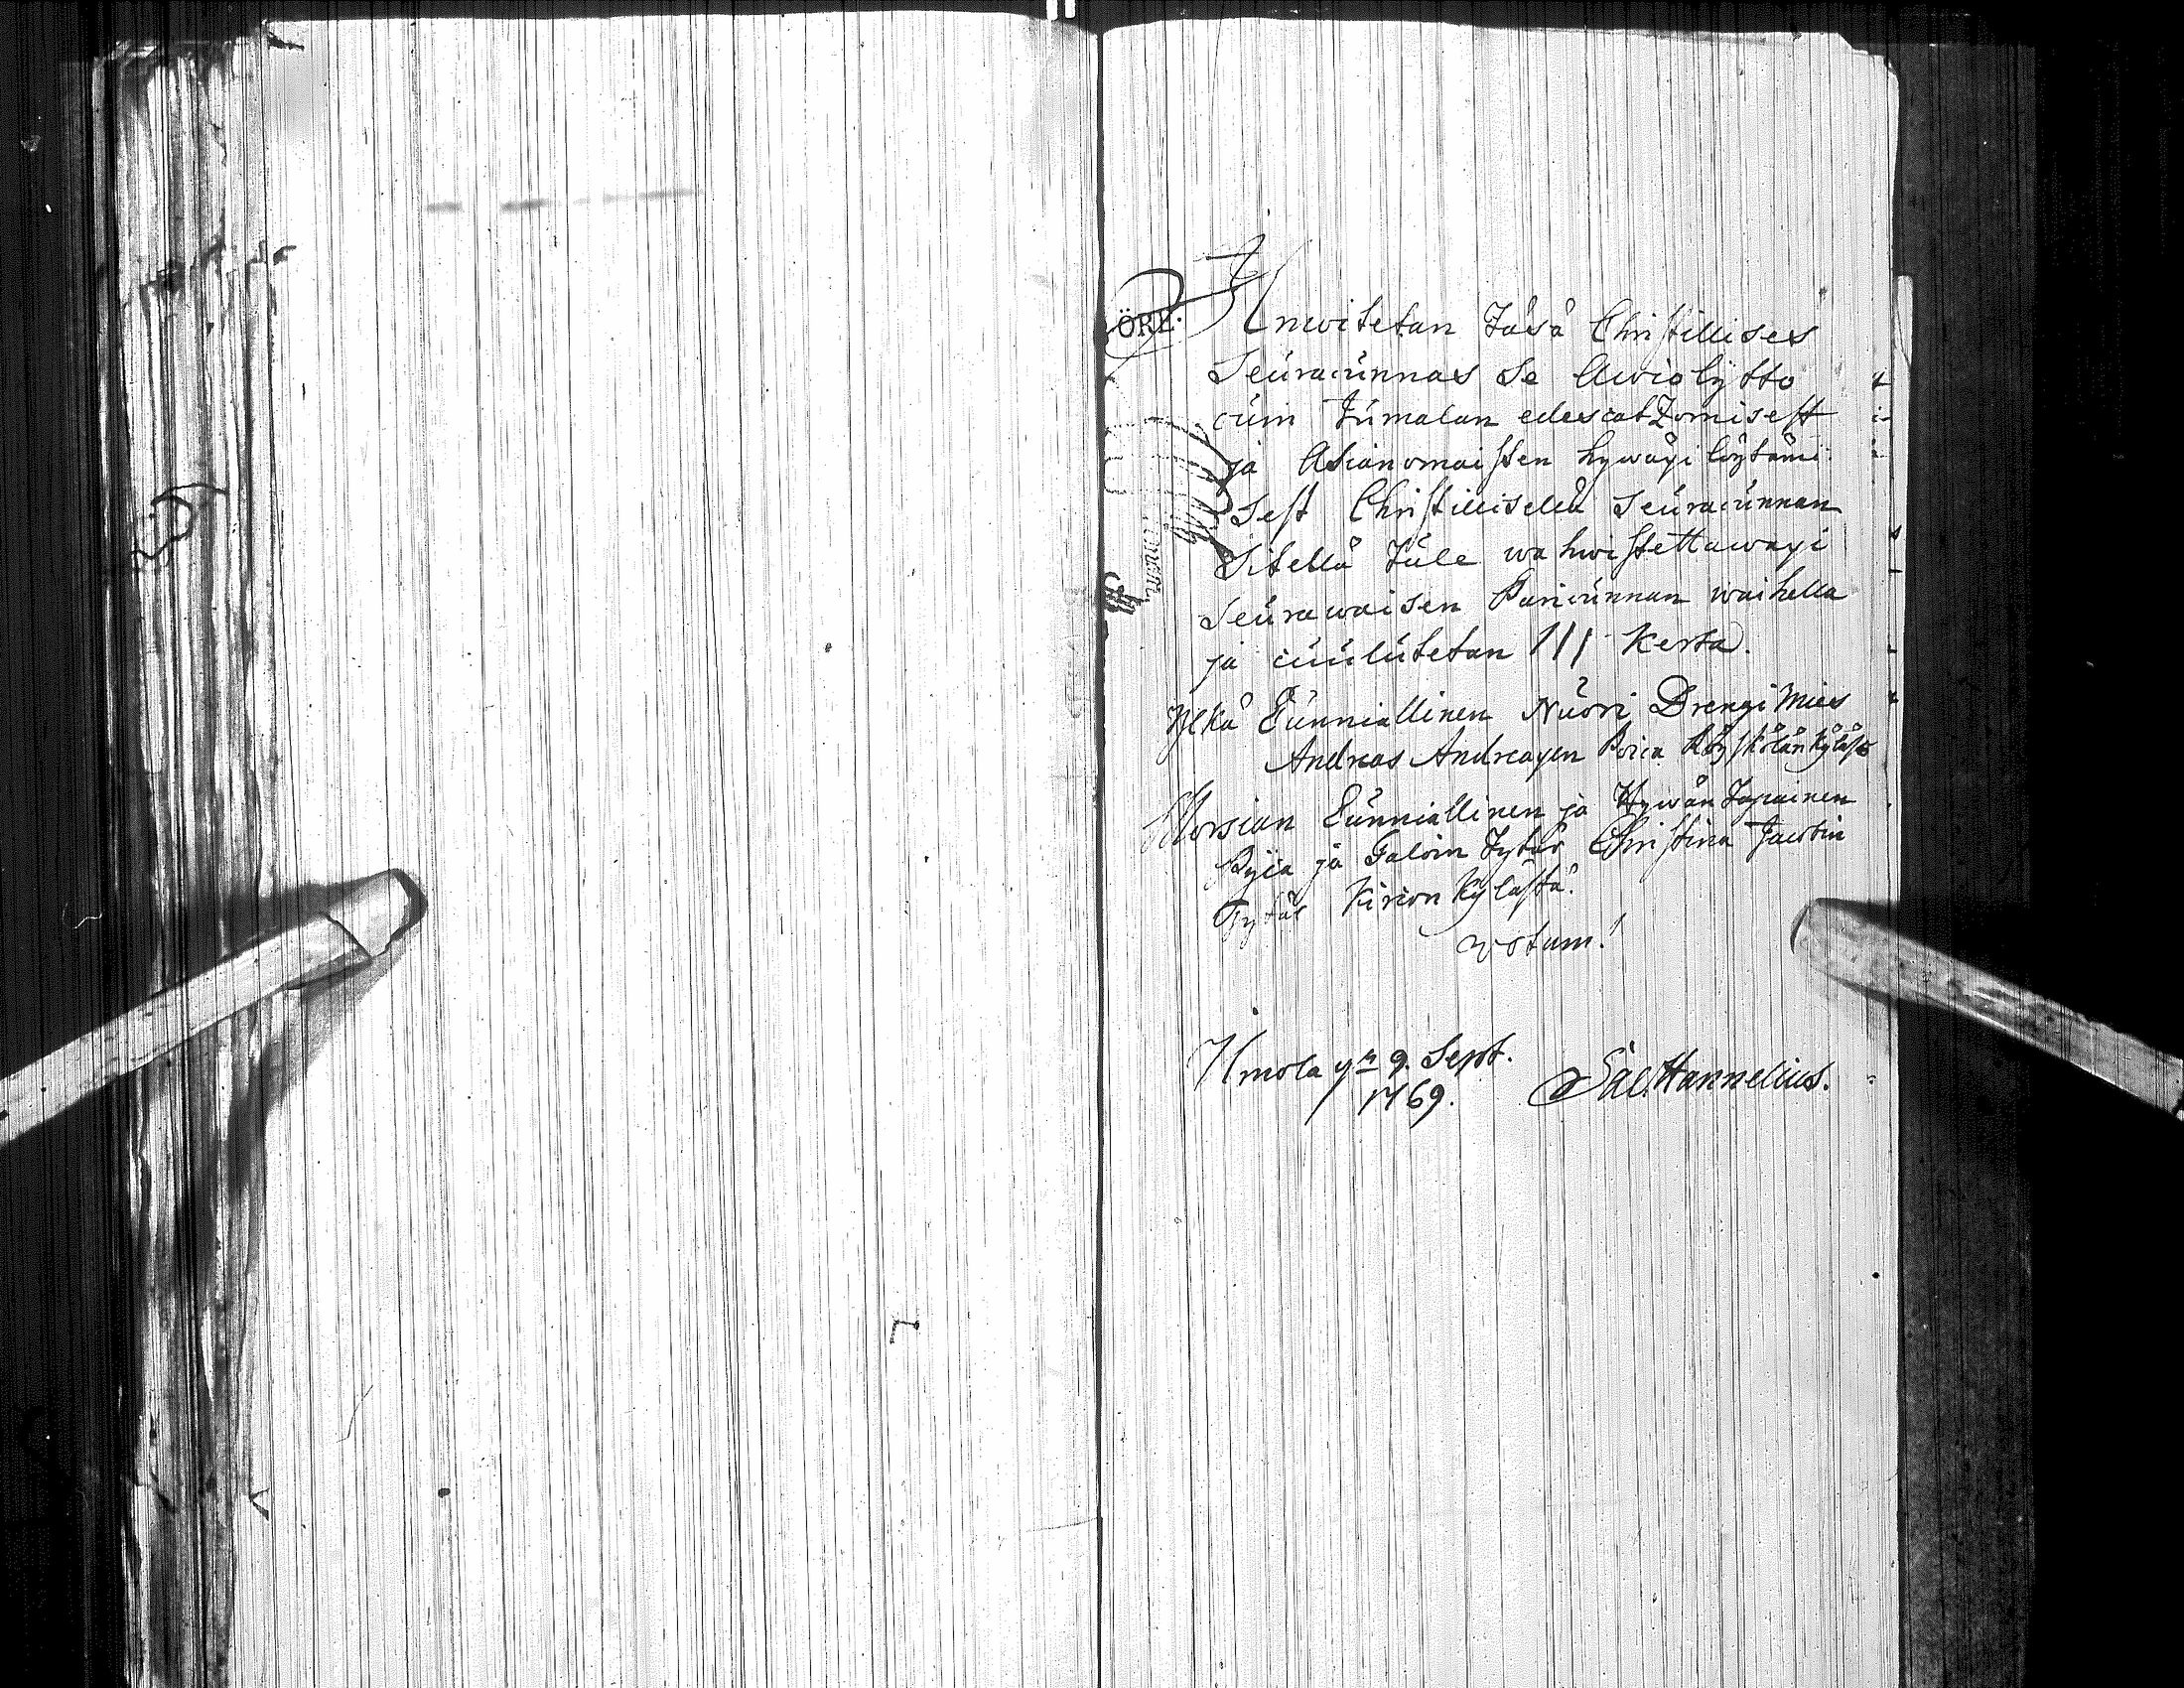 ÖRE.
Ilmoitetan Täsä Christillises
Seuracunnas se Awiolytto
cuin Jumalan edescatzomisest
ja Asianomaisten hywäxi löytämi
sest Christillisellä Seuracunnan
Sitellä tule wahwistettawaxi
Seurawaisen Pariscunnan waihella
ja cuulutetan III Kerta.
Ylkä Cunniallinen Nuori Drengi Mies
Andreas Andreaxen Poica Köyskölän kyläst
Morsian Cunniallinen ja Hywän Tapainen
Pijca ja Taloin Tytär Christina Jacobin
Tytär Kircon Kylästä.
votum!
Ilmola yn 9. Sept.
1769.
Sal. Hannelius.